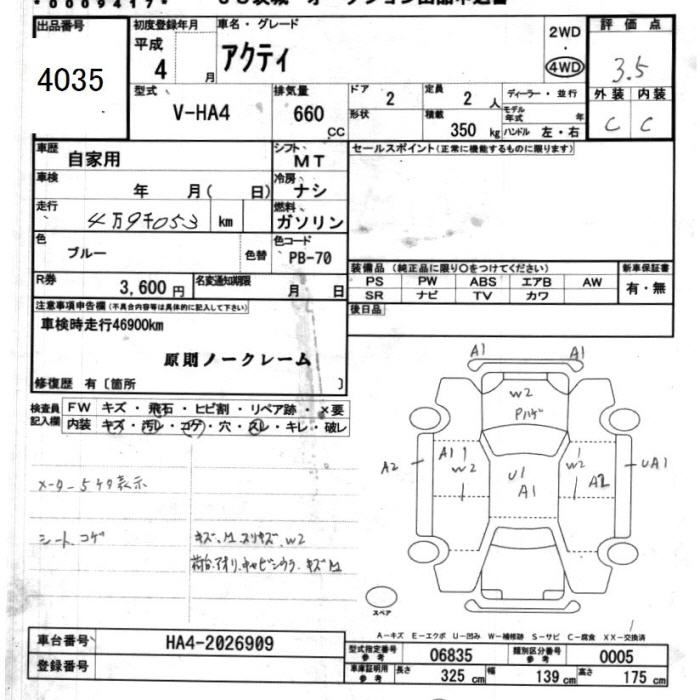 出品番号 4035
初度登録年月 平成 4 月
車名・グレード アクティ
2WD ・ 4WD
評価点 3.5
型式 V-HA4
排気量 660 CC
ドア 2
形状
定員 2 人
積載 350 kg
ディーラー・並行
モデル年式 年
ハンドル 左・右
外装 C
内装 C
車歴 自家用
シフト MT
セールスポイント(正常に機能するものに限ります)
車検 年 月( 日)
冷房 ナシ
走行 4万9千053 km
燃料 ガソリン
色 ブルー 色替
色コード PB-70
R券 3,600 円
名変通知期限 月 日
装備品 (純正品に限り〇をつけてください)
新車保証書
PS PW ABS エアB AW
有・無
SR ナビ TV カワ
後日品
注意事項申告欄(不具合内容等は具体的に記入して下さい)
車検時走行46900km
原則ノークレーム
修復歴 有〔箇所 〕
検査員記入欄
FW キズ・飛石・ヒビ割・リペア跡・×要
内装 キズ・汚レ・コゲ・穴・スレ・キレ・破レ
メーター5ケタ表示
シートコゲ
A1 A1
W2
Pハゲ
A1 W2
W2
A2
U1
A1
A2
UA1
スペア
A-キズ E-エクボ U-凹み W-補修跡 S-サビ C-腐食 XX-交換済
車台番号 HA4-2026909
登録番号
型式指定番号 参考 06835
類別区分番号 参考 0005
車庫証明用 参考 長さ 325 cm 幅 139 cm 高さ 175 cm